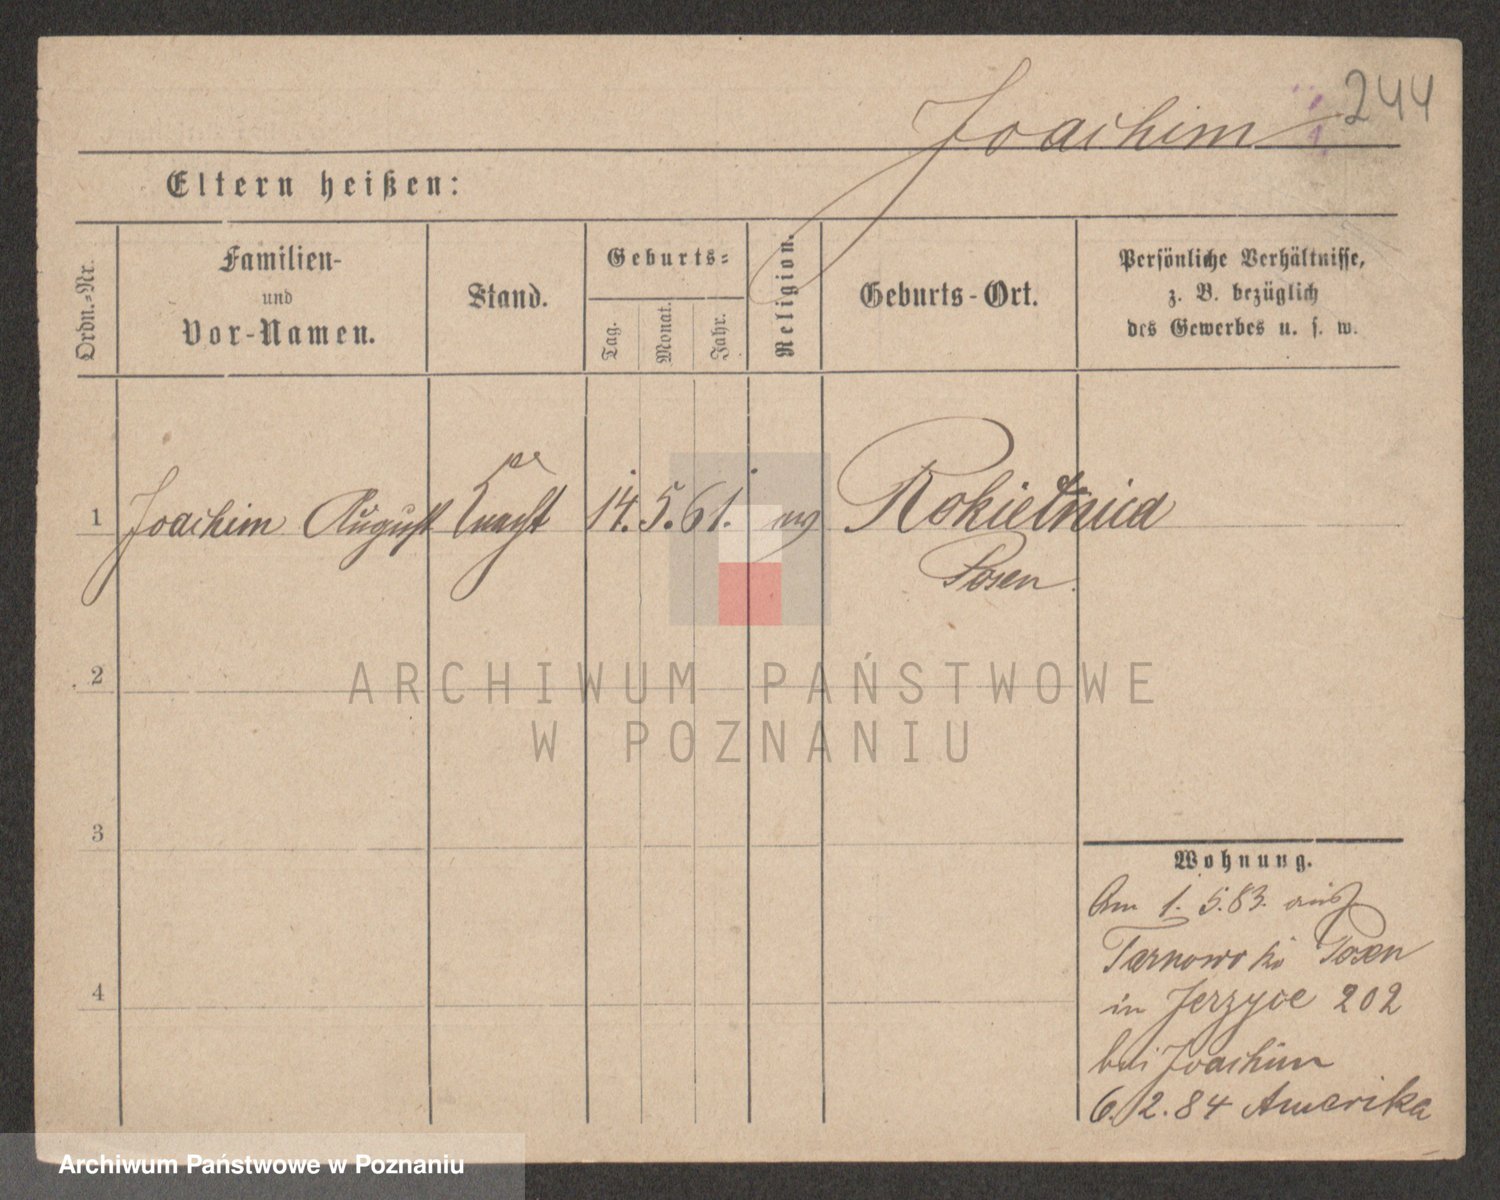 244
Joachim
Eltern heißen:
Ordn.-Nr.
Familien-
und
Vor-Namen.
Stand.
Geburts-
Tag.
Monat.
Jahr.
Religion.
Geburts-Ort.
Persönliche Verhältnisse,
z. B. bezüglich
des Gewerbes u. s. w.
1 Joachim August Knecht 14. 5. 61. ev Rokietnica
Posen
2
ARCHIWUM PAŃSTWOWE
W POZNANIU
3
4
Wohnung.
Am 1. 5. 83. aus
Tarnowo Kr Posen
in Jerzyce 202
bei Joachim
6.12.84 Amerika
Archiwum Państwowe w Poznaniu